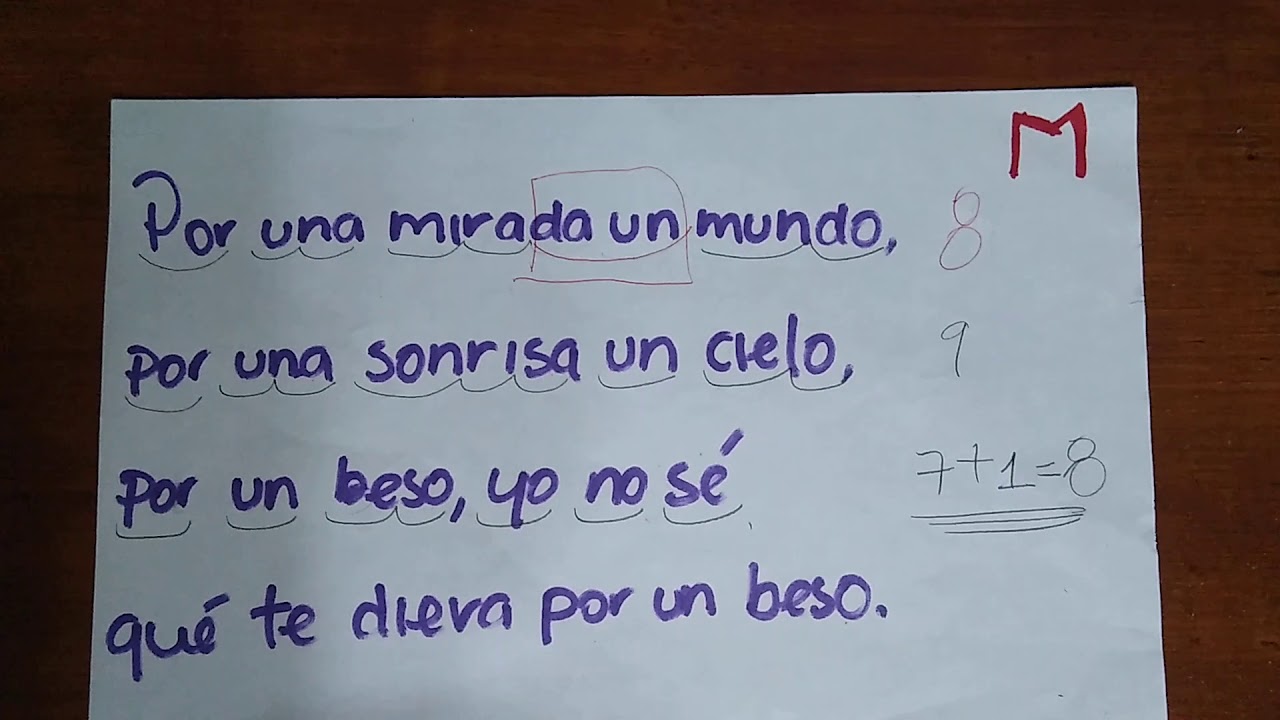 M
Por una mirada un mundo, 8
por una sonrisa un cielo, 9
por un beso, yo no sé 7+1=8
qué te diera por un beso.